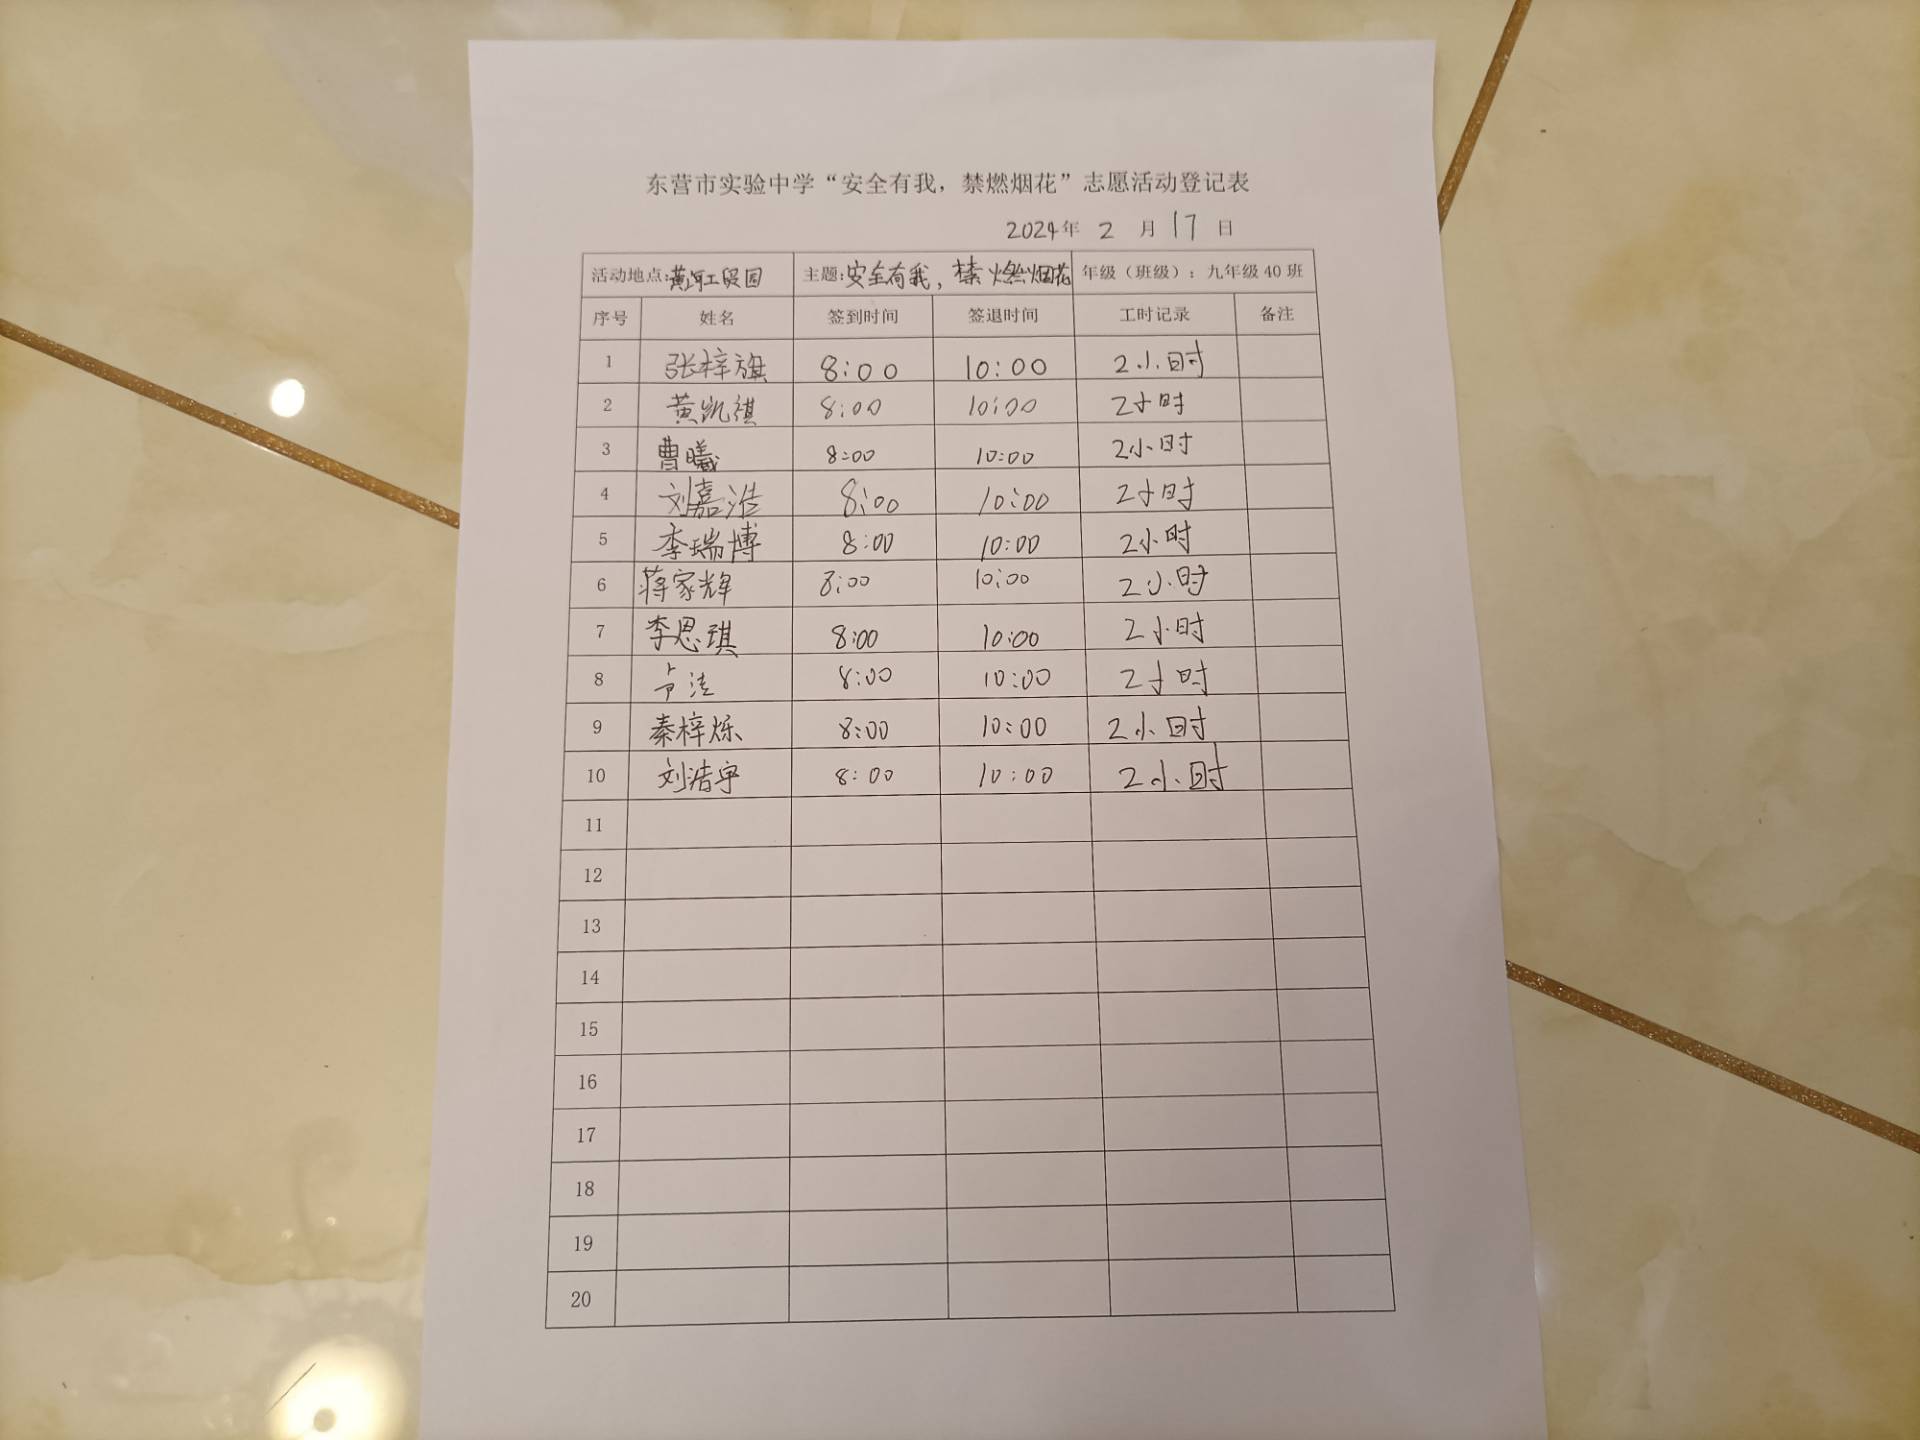 东营市实验中学“安全有我，禁燃烟花”志愿活动登记表
2024年 2 月 17 日
活动地点:黄河工贸园 主题:安全有我，禁燃烟花 年级（班级）：九年级40班
序号 姓名 签到时间 签退时间 工时记录 备注
1 张梓旗 8:00 10:00 2小时
2 黄凯祺 8:00 10:00 2小时
3 曹曦 8:00 10:00 2小时
4 刘嘉浩 8:00 10:00 2小时
5 李瑞博 8:00 10:00 2小时
6 蒋家辉 8:00 10:00 2小时
7 李恩琪 8:00 10:00 2小时
8 8:00 10:00 2小时
9 秦梓烁 8:00 10:00 2小时
10 刘浩宇 8:00 10:00 2小时
11
12
13
14
15
16
17
18
19
20